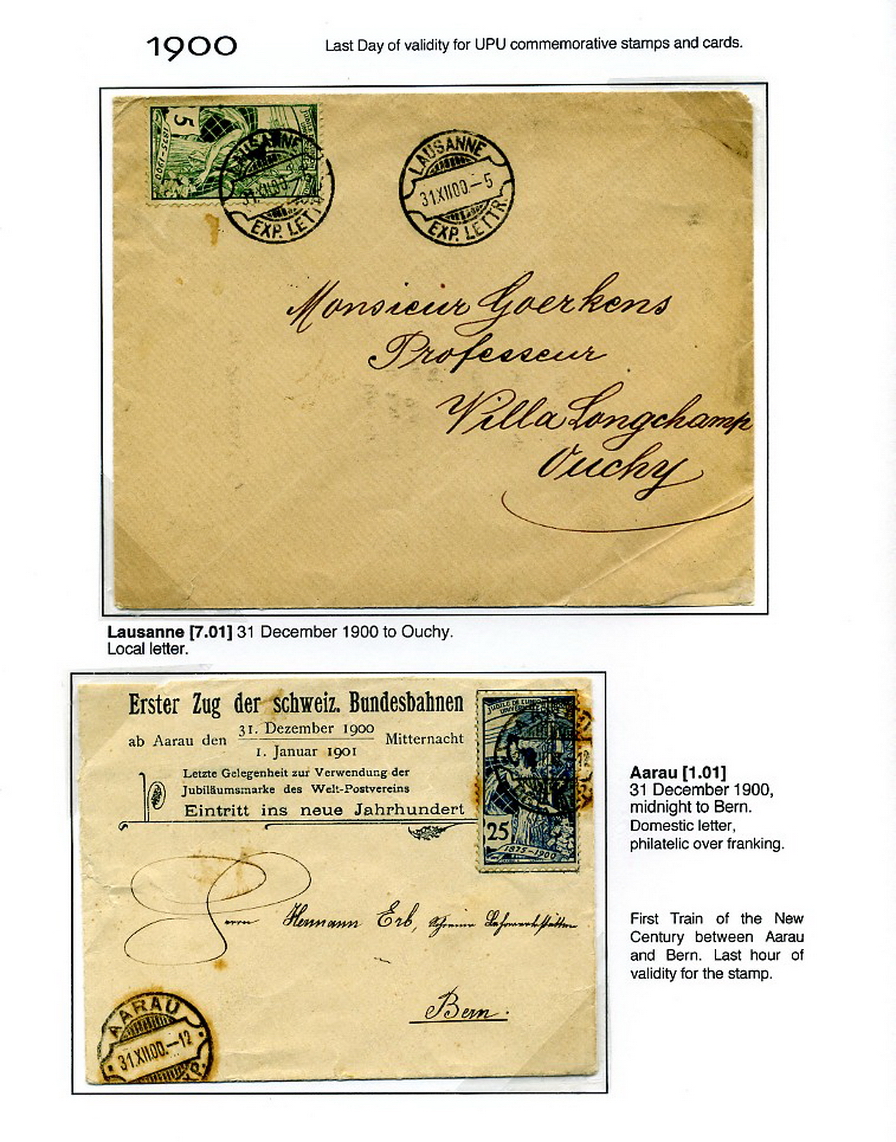 1900
Last Day of validity for UPU commemorative stamps and cards.
5
1875-1900
LAUSANNE
31.XII.00.
EXP. LETTR.
LAUSANNE
31.XII.00.–5
EXP. LETTR.
Monsieur Goerkens
Professeur
Villa Longchamp
Ouchy
Lausanne [7.01] 31 December 1900 to Ouchy.
Local letter.
Erster Zug der schweiz. Bundesbahnen
ab Aarau den 31. Dezember 1900 Mitternacht
1. Januar 1901
Letzte Gelegenheit zur Verwendung der
Jubiläumsmarke des Welt-Postvereins
Eintritt ins neue Jahrhundert
JUBILÉ DE L'UNION
25
1875–1900
Herrn Hermann Erb, Schreiner Lehrwerkstätten
Bern.
AARAU
31.XII.00.–12
EXP.
Aarau [1.01]
31 December 1900,
midnight to Bern.
Domestic letter,
philatelic over franking.
First Train of the New
Century between Aarau
and Bern. Last hour of
validity for the stamp.